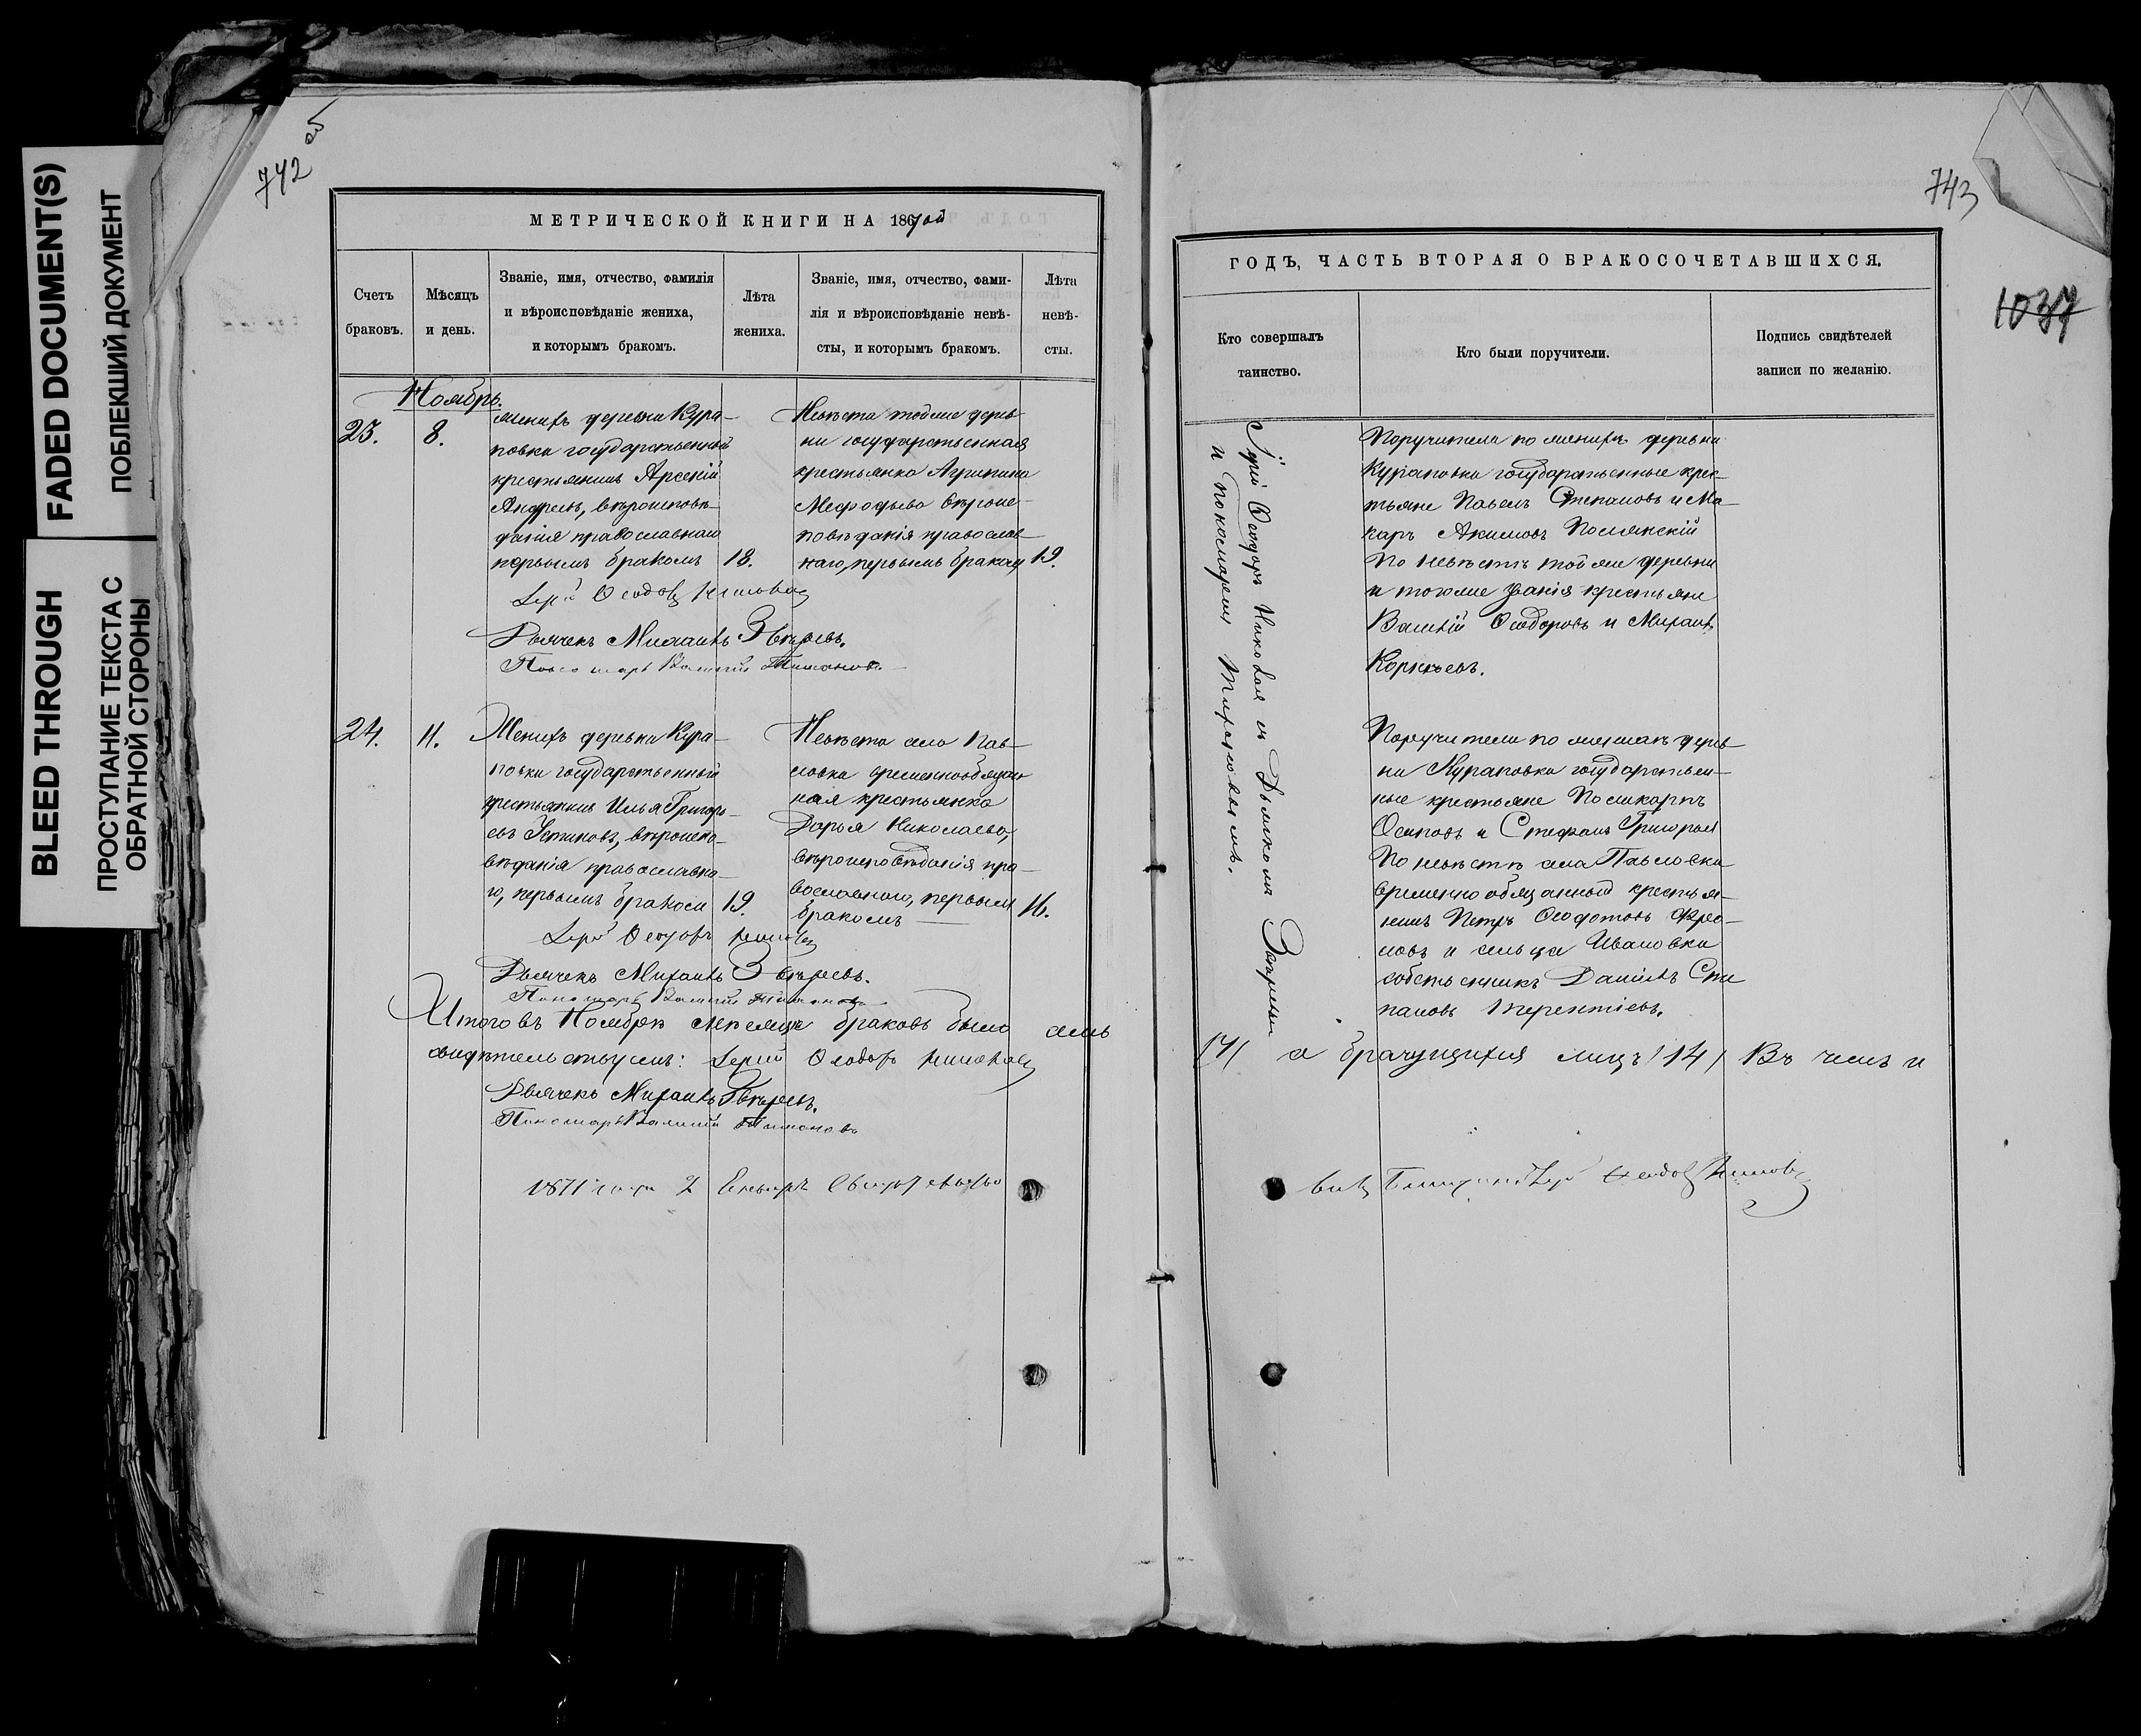 FADED DOCUMENT(S)
ПОБЛЕКШИЙ ДОКУМЕНТ
BLEED THROUGH
ПРОСТУПАНИЕ ТЕКСТА С
ОБРАТНОЙ СТОРОНЫ
742 об
МЕТРИЧЕСКОЙ КНИГИ НА 1870й
Счетъ
браковъ.
Мѣсяцъ
и день.
Званіе, имя, отчество, фамилія
и вѣроисповѣданіе жениха,
и которымъ бракомъ.
Лѣта
жениха.
Званіе, имя, отчество, фами-
лія и вѣроисповѣданіе невѣ-
сты, и которымъ бракомъ.
Лѣта
невѣ-
сты.
Ноябрь.
23.
8.
женихъ деревни Кура-
повки государственный
крестьянинъ Арсеній
Андреевъ, вѣроисповѣ-
данія православнаго
первымъ бракомъ
18.
Невѣста тойже дерев
ни государственная
крестьянка Агрипина
Мефодьева вѣроис-
повѣданія православ-
наго, первымъ бракомъ
19.
Дьячекъ Михаилъ Звѣревъ.
Пономарь Василій
24.
11.
Женихъ деревни Кура-
повки государственный
крестьянинъ Илья Григорь-
евъ Устиновъ, вѣроиспо-
вѣданія православна-
го, первымъ бракомъ
19.
Невѣста села Пав-
ловки временнообязан
ная крестьянка
Дарья Николаева,
вѣроисповѣданія пра-
вославнаго, первымъ
бракомъ
16.
Дьячекъ Михаилъ Звѣревъ.
Пономарь Василій
Итого въ Ноябрѣ мѣсяцѣ браковъ было семь
свидѣтельствуемъ: Іерей Ѳеодоръ
Дьячекъ Михаилъ Звѣревъ.
Пономарь Василій
1871 года 2
743
1037
ГОДЪ, ЧАСТЬ ВТОРАЯ О БРАКОСОЧЕТАВШИХСЯ.
Кто совершалъ
таинство.
Кто были поручители.
Подпись свидѣтелей
записи по желанію.
Іерей Ѳеодоръ съ Дьячкомъ Звѣревымъ
и пономаремъ
Поручители по женихѣ деревни
Кураповки государственные крес-
тьяне Павелъ Степановъ и Ма-
каръ Акимовъ Полянскій
По невѣстѣ тойже деревни
и тогоже званія крестьяне
Василій Ѳеодоровъ и Михаилъ
Корнѣевъ.
Поручители по женихѣ дерев-
ни Кураповки государствен-
ные крестьяне Поликарпъ
Осиповъ и Стефанъ Григорьев
По невѣстѣ села Павловки
временнообязанный крестья-
нинъ Петръ Фро-
ловъ и сельца Ивановки
собственникъ Даніилъ Сте
пановъ Терентіевъ.
/7/ а брачущихся лицъ /14/ Въ чемъ и